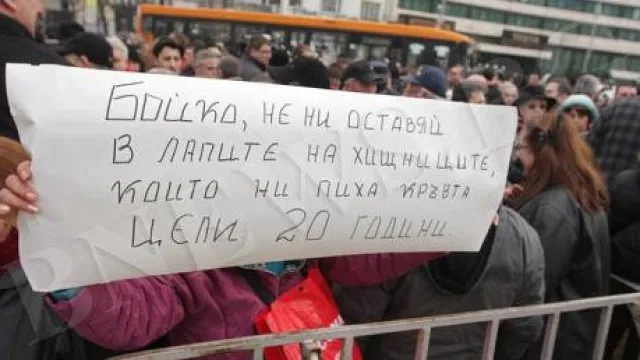 Бойко, не ни оставяй
в лапите на хищниците,
които ни пиха кръвта
цели 20 години.